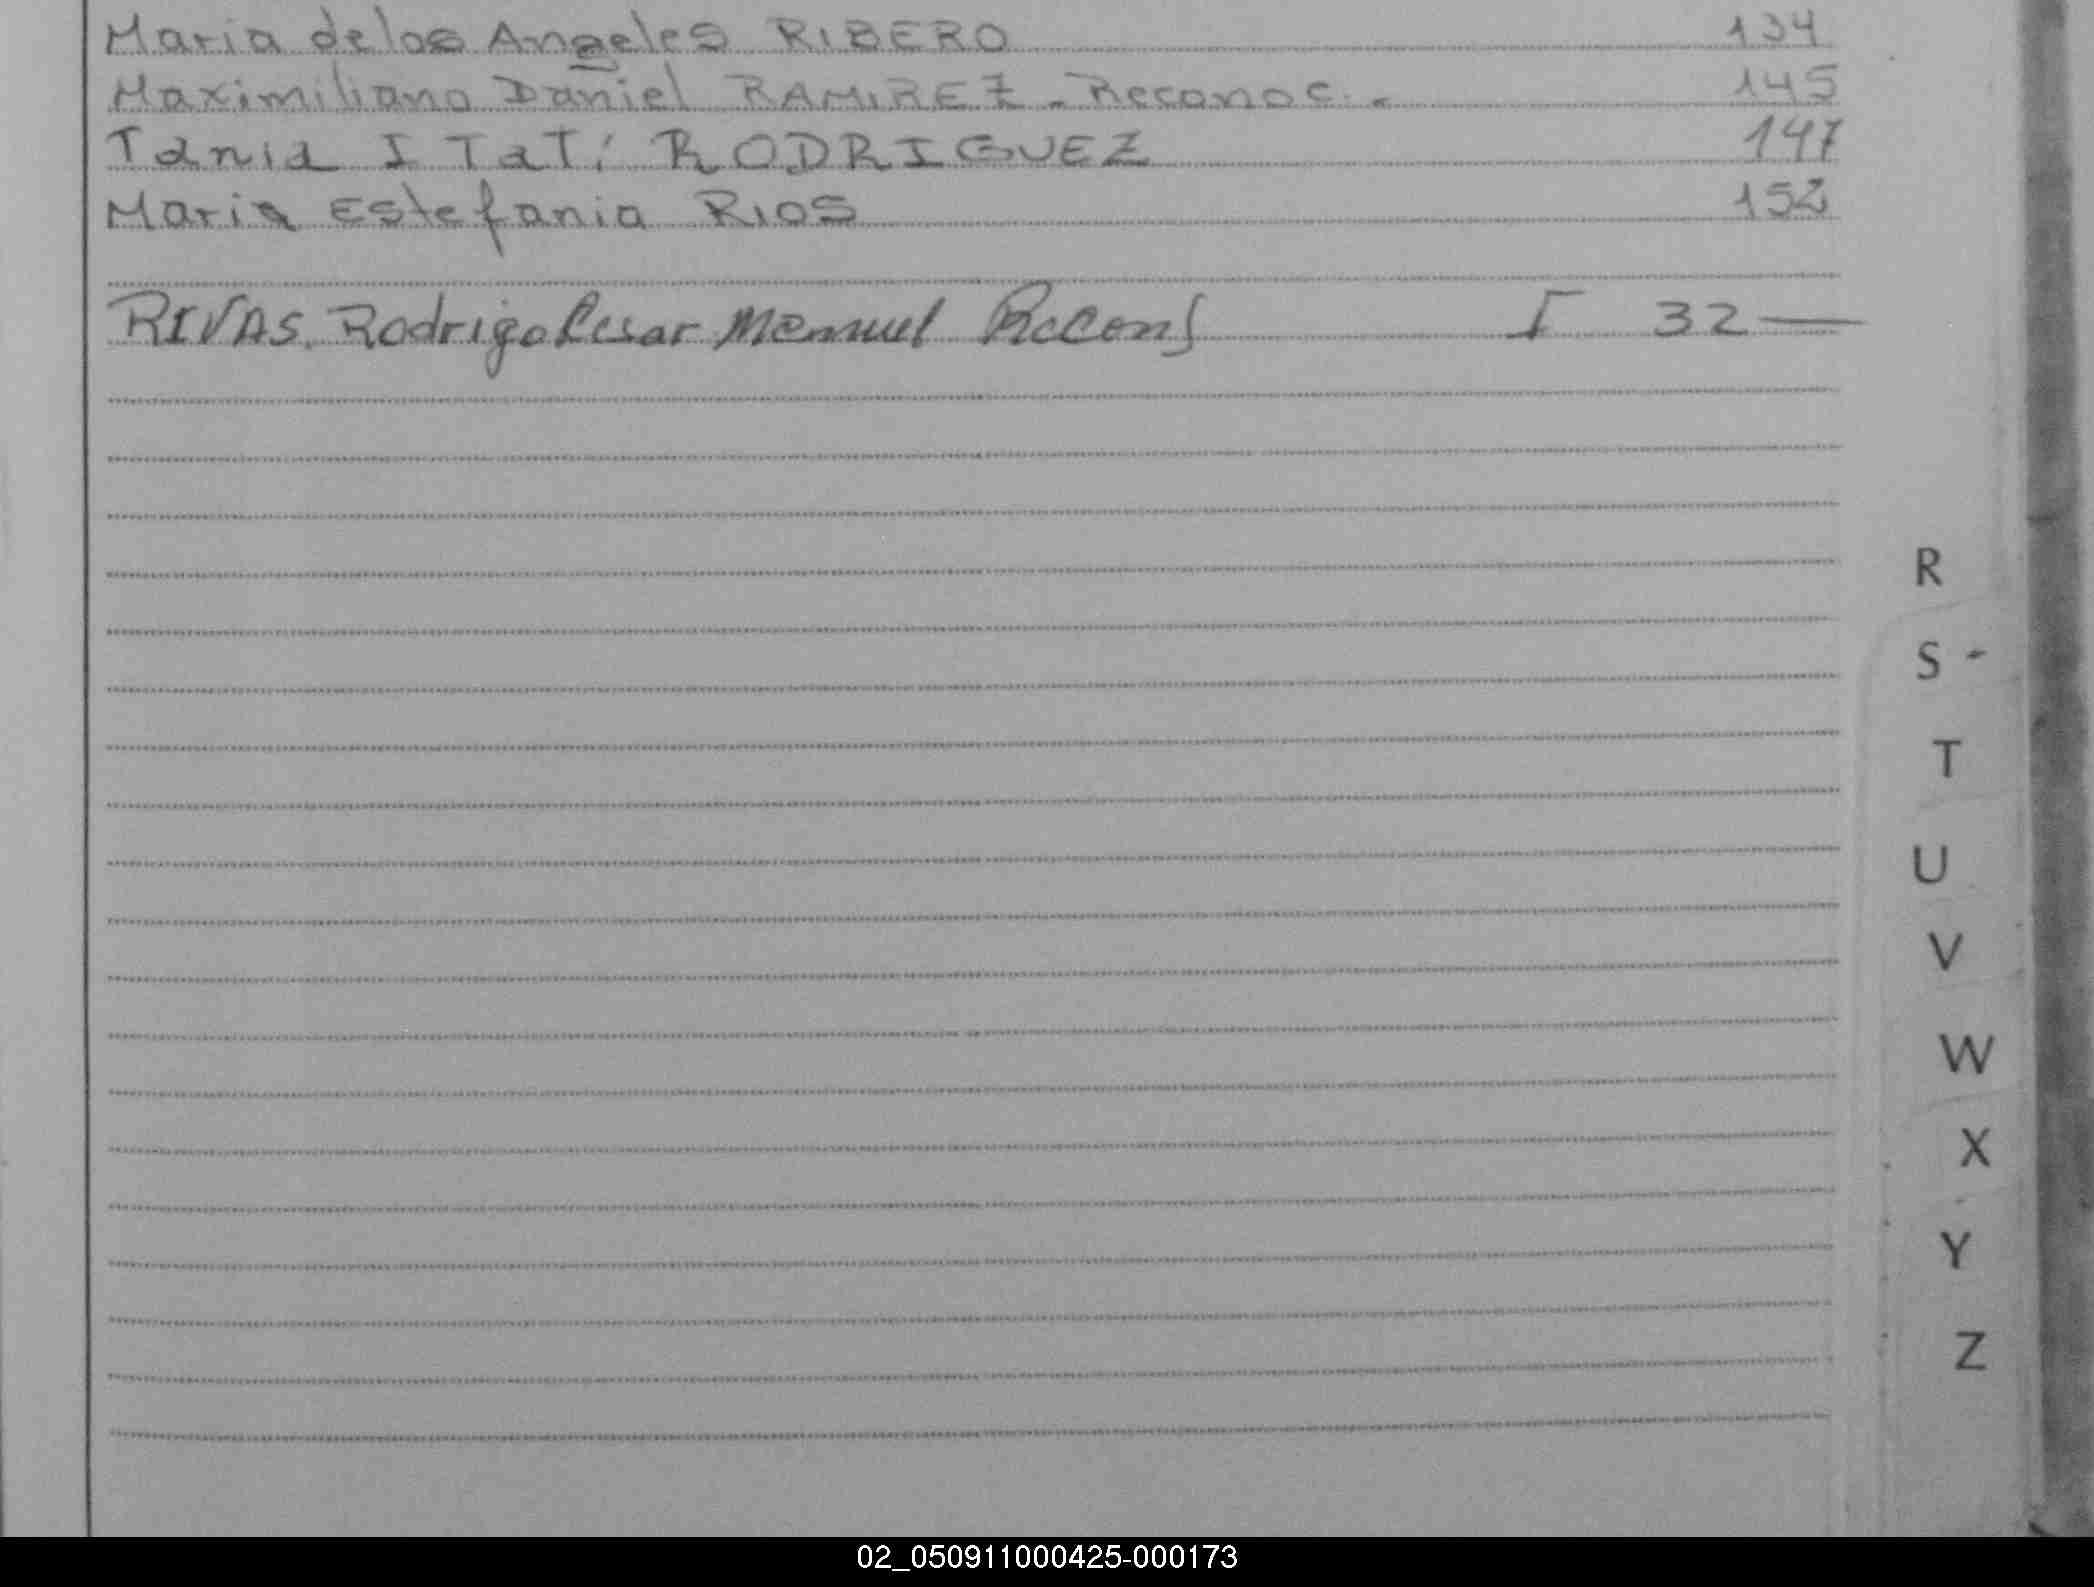 Maria de los Angeles RIBERO 134
Maximiliano Daniel RAMIREZ - Reconoc. - 145
Tania ITatí RODRIGUEZ 147
Maria Estefania RIOS 152
RIVAS. Rodrigo Cesar Manuel Recon I 32
R
S -
T
U
V
W
X
Y
Z
02_050911000425-000173